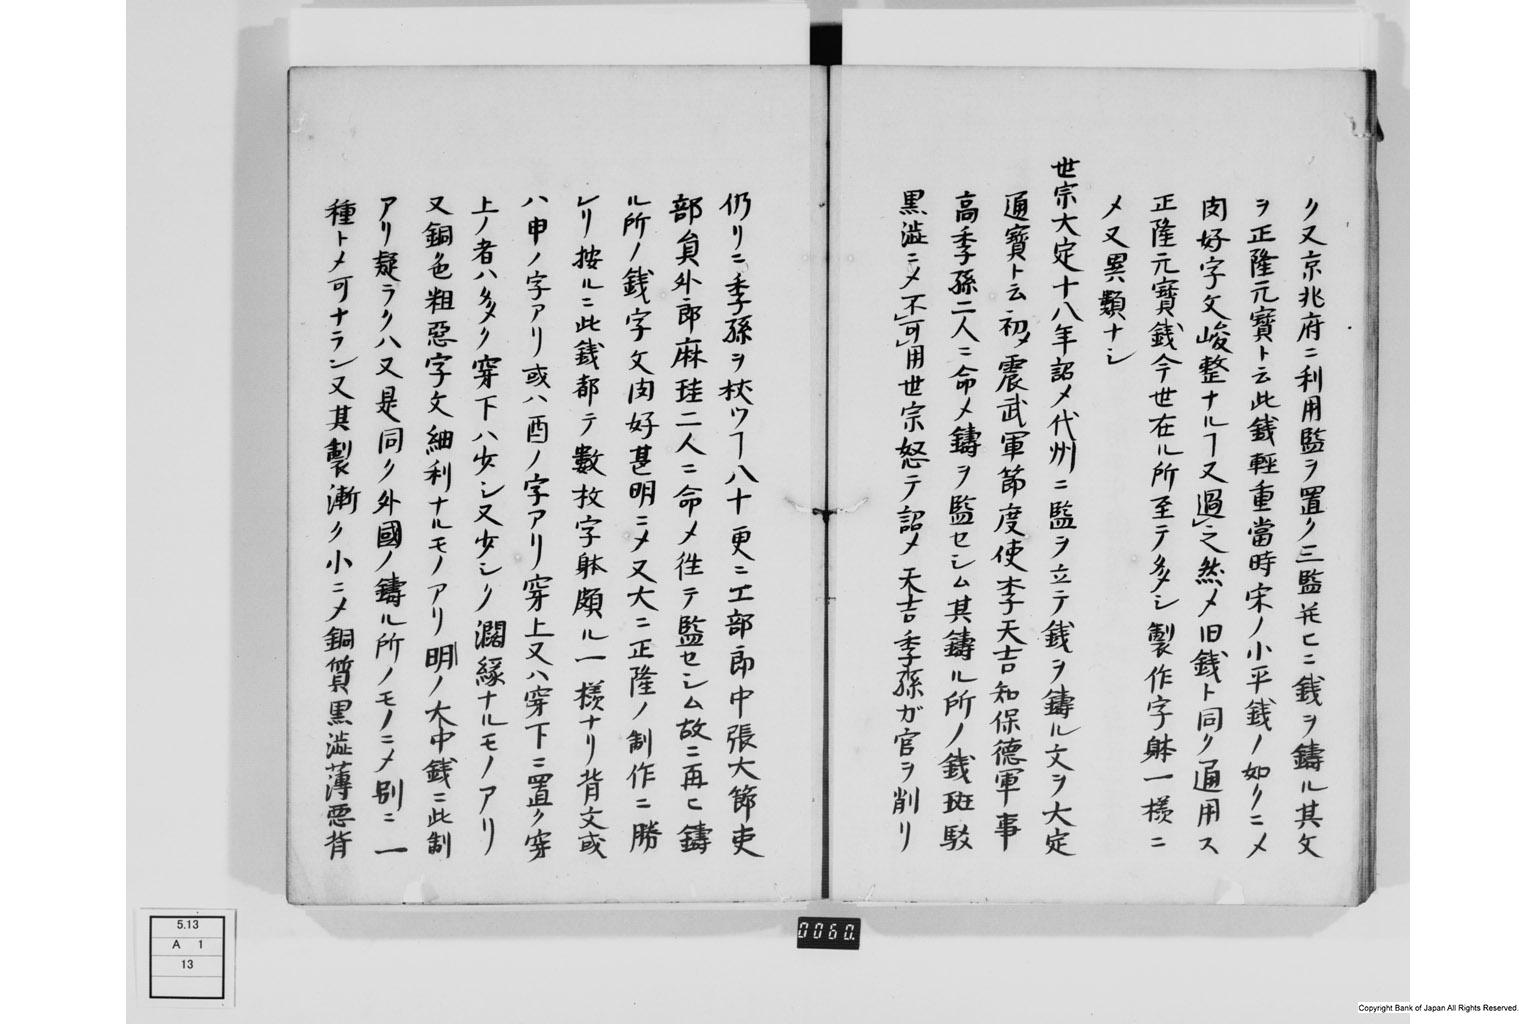 ク又京兆府ニ利用監ヲ置ク三監共ヒニ銭ヲ鑄ル其文
ヲ正隆元寳ト云此銭輕重當時宋ノ小平銭ノ如クニメ
肉好字文峻整ナルヿ又過之然メ旧銭ト同ク通用ス
正隆元寳銭今世在ル所至テ多シ製作字躰一様ニ
メ又異類ナシ
世宗大定十八年詔メ代州ニ監ヲ立テ銭ヲ鑄ル文ヲ大定
通寳ト云初メ震武軍節度使李天吉知保德軍事
高季孫二人ニ命メ鑄ヲ監セシム其鑄ル所ノ銭斑駁
黒澁ニメ不可用世宗怒テ詔メ天吉季孫ガ官ヲ削リ
仍リニ季孫ヲ杖ウヿ八十更ニ工部郎中張大節吏
部員外郎麻珪二人ニ命メ徃テ監セシム故ニ再ヒ鑄
ル所ノ銭字文肉好甚明ニメ又大ニ正隆ノ制作ニ勝
レリ按ルニ此銭都テ數枚字躰頗ル一様ナリ背文或
ハ申ノ字アリ或ハ酉ノ字アリ穿上又ハ穿下ニ置ク穿
上ノ者ハ多ク穿下ハ少シ又少シク濶縁ナルモノアリ
又銅色粗惡字文細利ナルモノアリ明ノ大中銭ニ此制
アリ疑ラクハ又是同ク外國ノ鑄ル所ノモノニメ別ニ一
種トメ可ナラン又其製漸ク小ニメ銅質黒澁薄惡背
0060.
5.13
A 1
13
Copyright Bank of Japan All Rights Reserved.